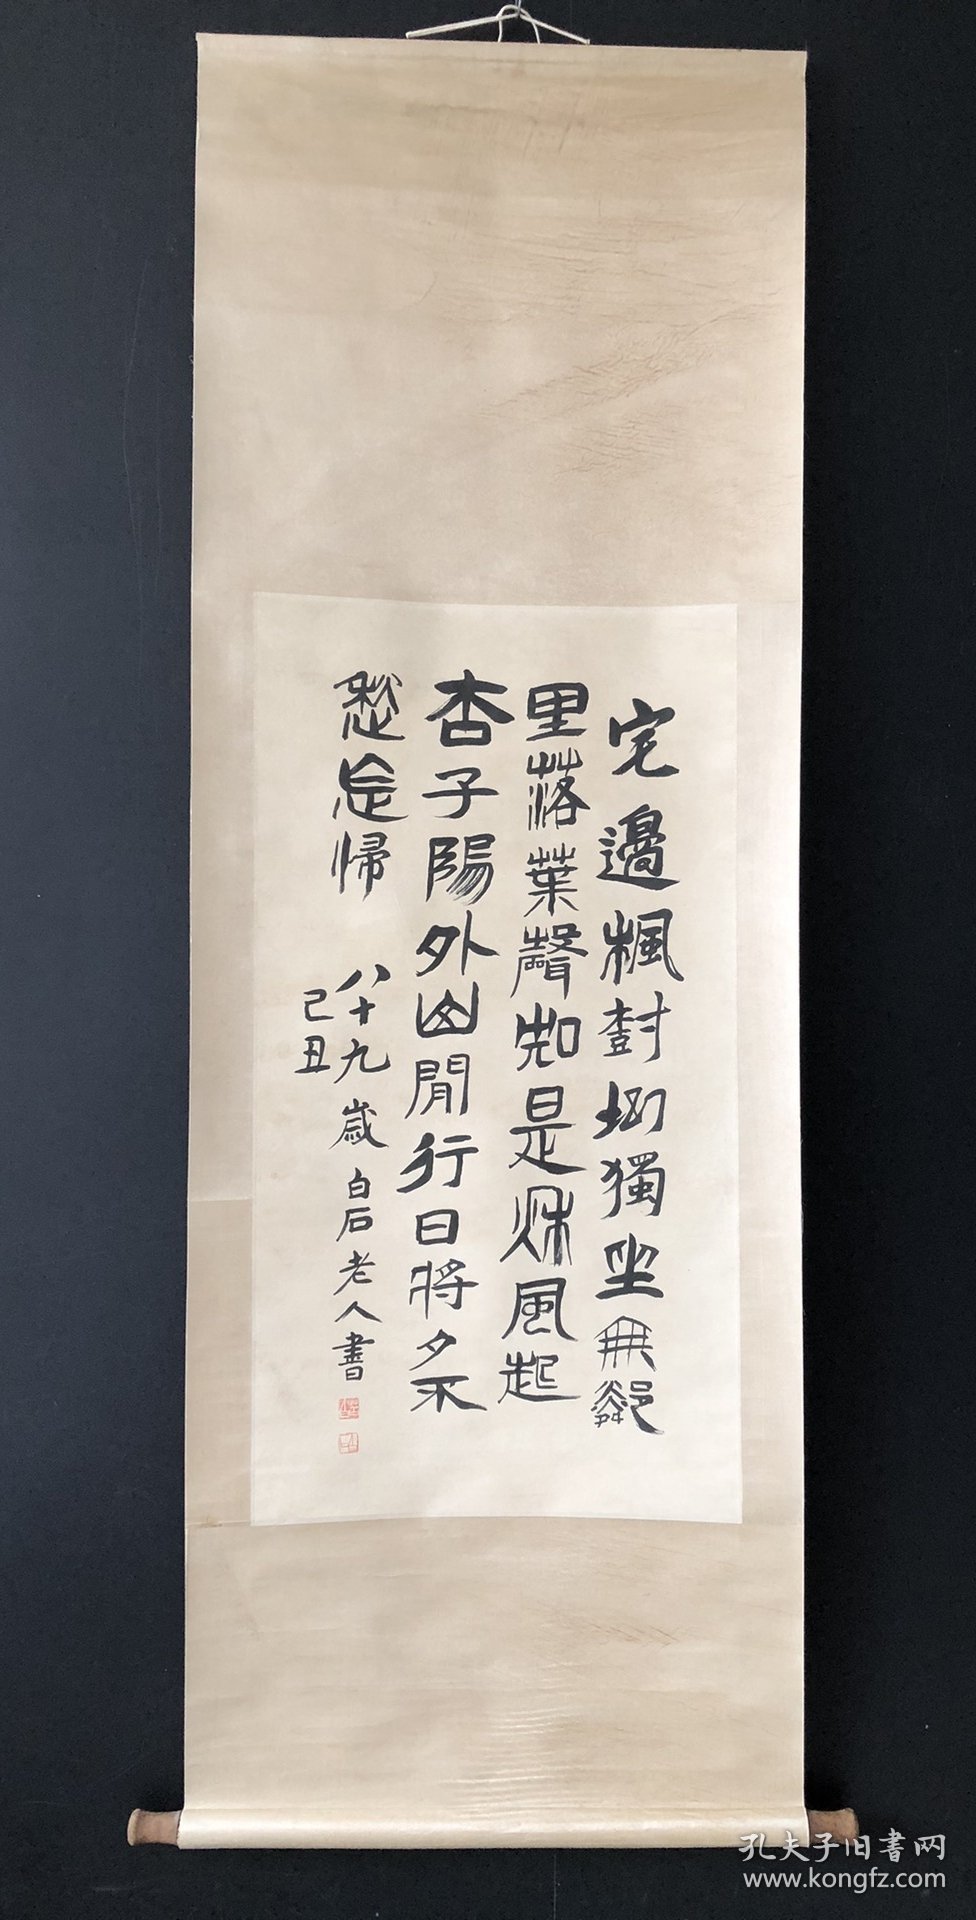 宅邊楓尌坳獨坐無鄰
里落葉聲知是秌風起
杏子隖外山閒行日將夕不
愁忘歸
八十九歲白石老人書
己丑
孔夫子旧書网
www.kongfz.com